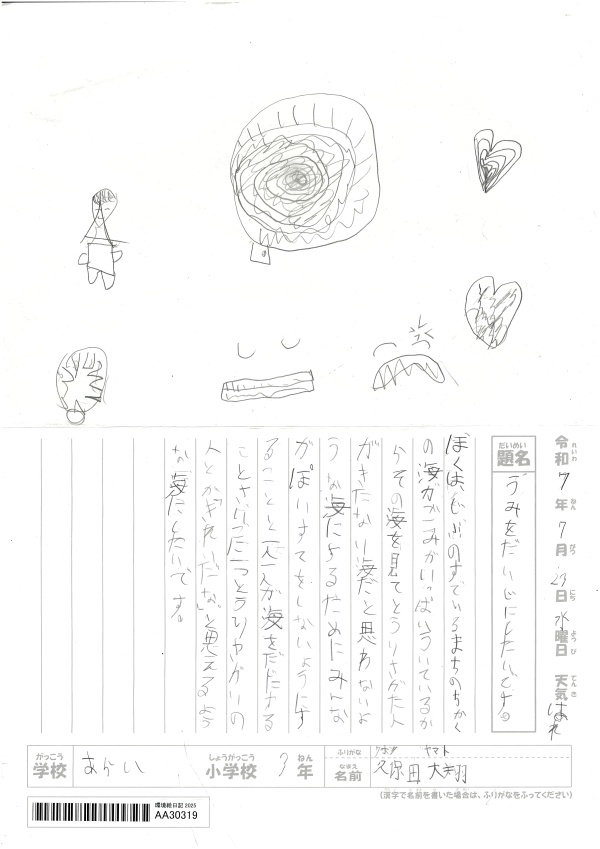 令和7年7月23日水曜日 天気はれ
れいわ ねん がつ にち ようび てんき
だいめい
題名
うみをだいじにしたいです。
ぼくは、じぶのすでいるまちのちかく
の海がごみがいっぱいういているか
らその海を見てとうりさがた人
がきたない海だと思わないよ
うな海によるためにみんな
がぽいすてをしないようにす
ることと一人一人が海をだじにする
ことさいごに一つとうりかがいの
人とかがきれいだな」と思えるよう
な海にしたいです。
がっこう
学校
あらい
しょうがっこう
小学校
3
ねん
年
ふりがな
クボタ ヤマト
なまえ
名前
久保田 大翔
(漢字で名前を書いた場合は、ふりがなをふってください)
環境絵日記 2025
AA30319